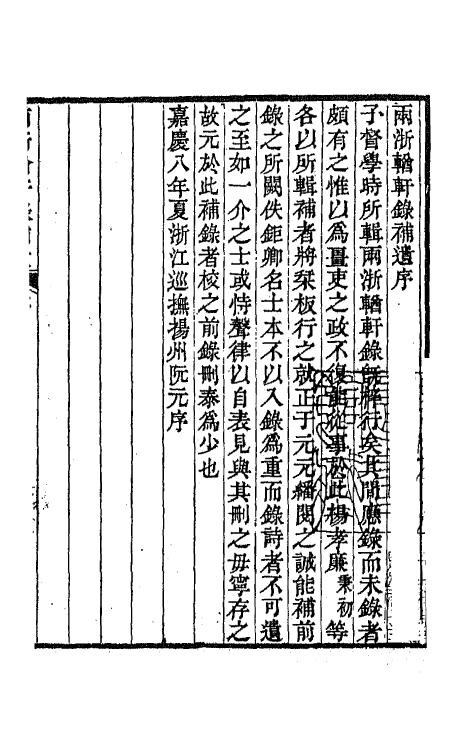 兩浙輶軒錄補遺序
予督學時所輯兩浙輶軒錄旣梓行矣其間應錄而未錄者
頗有之惟以爲畺吏之政不復能從事於此楊孝廉秉初等
各以所輯補者將栞板行之就正于元元繙閱之誠能補前
錄之所闕佚鉅卿名士本不以入錄爲重而錄詩者不可遺
之至如一介之士或恃聲律以自表見與其刪之毋寧存之
故元於此補錄者校之前錄刪泰爲少也
嘉慶八年夏浙江巡撫揚州阮元序